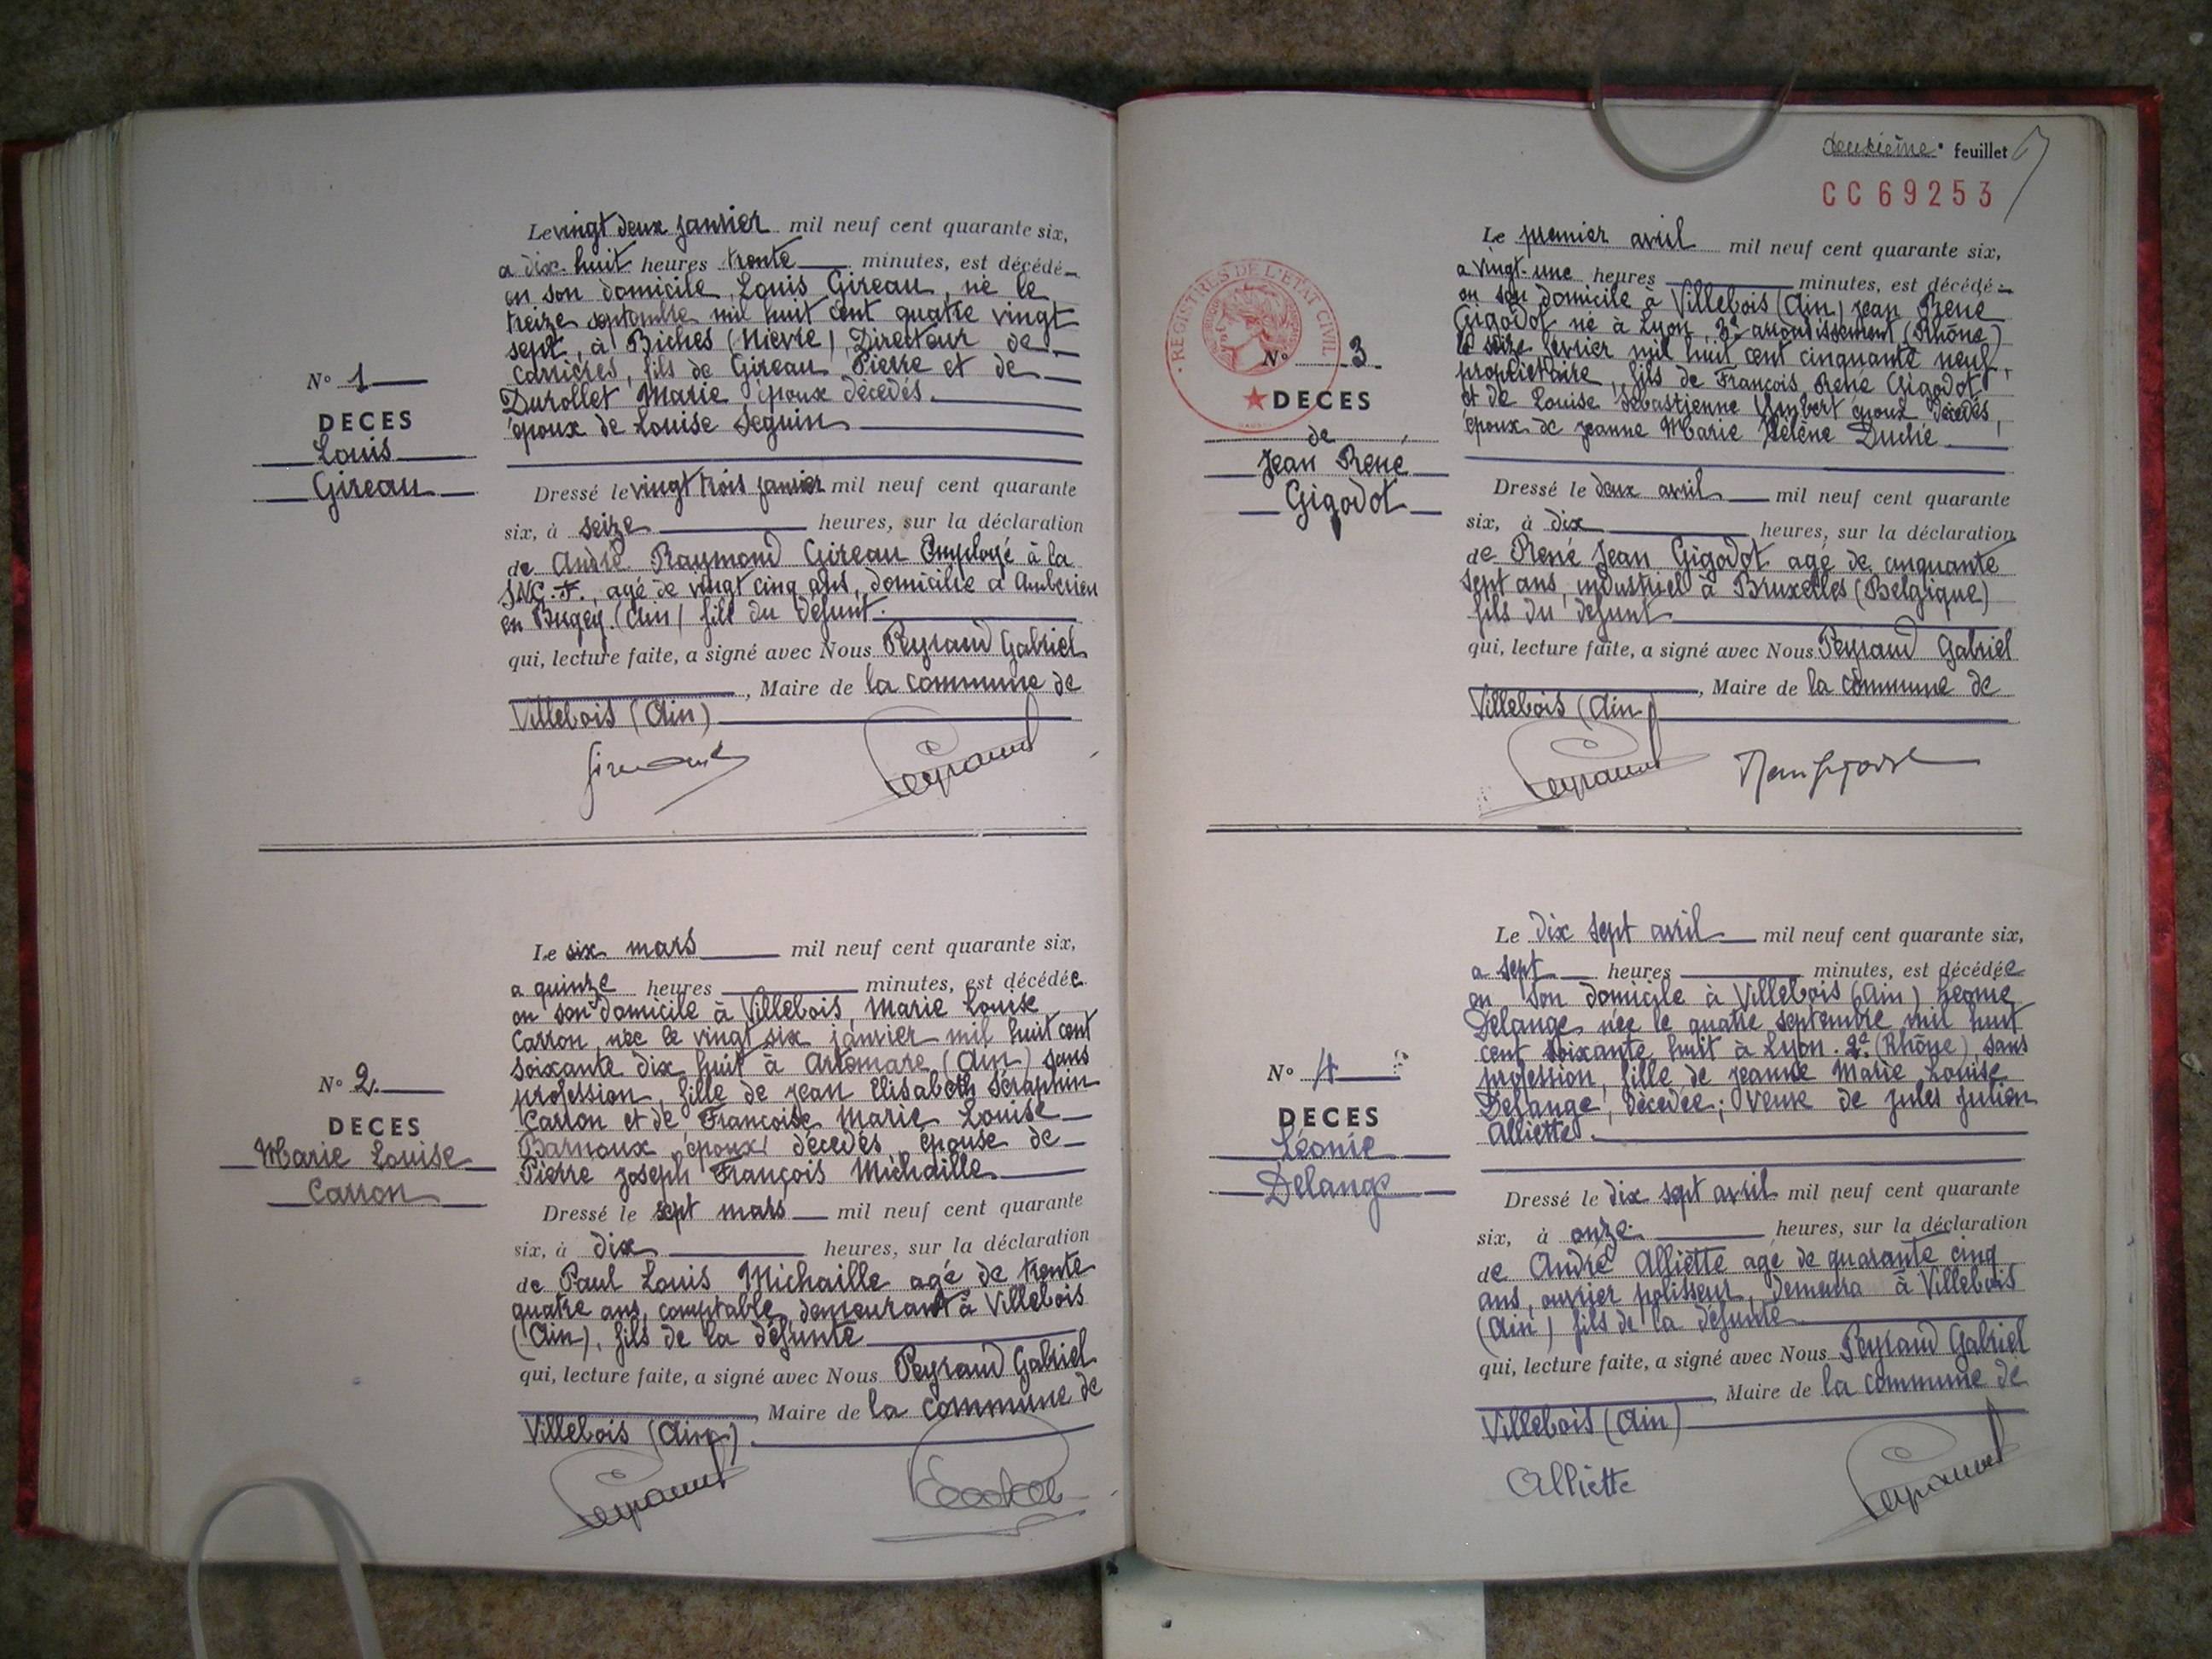 Le vingt deux janvier mil neuf cent quarante six,
a dix-huit heures trente minutes, est décédé
en son domicile, Louis Gireau, né le
treize septembre mil huit cent quatre vingt
sept, à Biches (Nièvre), Directeur de
carrières, fils de Gireau Pierre et de
Durollet Marie époux décédés.
époux de Louise Seguin
N° 1
DECES
Louis
Gireau
Dressé le vingt trois janvier mil neuf cent quarante
six, à seize heures, sur la déclaration
de André Raymond Gireau Employé à la
S.N.C.F., agé de vingt cinq ans, domicilié a Ambérieu
en Bugey. (Ain) fils du défunt.
qui, lecture faite, a signé avec Nous Peyraud Gabriel
, Maire de la commune de
Villebois (Ain)
Peyraud
Le six mars mil neuf cent quarante six,
a quinze heures minutes, est décédée
en son domicile à Villebois, Marie Louise
Carron, née le vingt six janvier mil huit cent
soixante dix huit à Artemare (Ain) sans
profession, fille de Jean Elisabeth Séraphin
Carron et de Francoise Marie Louise
Barnoux époux décédés, épouse de
Pierre Joseph François Michaille
N° 2.
DECES
Marie Louise
Carron
Dressé le sept mars mil neuf cent quarante
six, à dix heures, sur la déclaration
de Paul Louis Michaille agé de trente
quatre ans, comptable, demeurant à Villebois
(Ain), fils de la défunte
qui, lecture faite, a signé avec Nous Peyraud Gabriel
, Maire de la commune de
Villebois (Ain).
Peyraud
deuxième feuillet
CC69253
Le premier avril mil neuf cent quarante six,
a vingt-une heures minutes, est décédé
en son domicile à Villebois (Ain) Jean René
Gigodot né à Lyon, 3e arrondissement (Rhône)
le seize février mil huit cent cinquante neuf,
propriétaire, fils de François René Gigodot
et de Louise Sébastienne Umbert époux décédés,
époux de Jeanne Marie Hélène Duché
REGISTRES DE L'ETAT CIVIL
N° 3
DECES
de
Jean René
Gigodot
Dressé le deux avril mil neuf cent quarante
six, à dix heures, sur la déclaration
de René Jean Gigodot agé de cinquante
sept ans, industriel à Bruxelles (Belgique)
fils du défunt
qui, lecture faite, a signé avec Nous Peyraud Gabriel
, Maire de la commune de
Villebois (Ain)
Peyraud
Le dix sept avril mil neuf cent quarante six,
a sept heures minutes, est décédée
en son domicile à Villebois (Ain) Léonie
Delange née le quatre septembre mil huit
cent soixante huit à Lyon. 2e (Rhône), sans
profession, fille de Jeanne Marie Louise
Delange, décédée; Veuve de Jules Julien
Alliette.
N° 4
DECES
Léonie
Delange
Dressé le dix sept avril mil neuf cent quarante
six, à onze heures, sur la déclaration
de André Alliette agé de quarante cinq
ans, ouvrier polisseur, demeura à Villebois
(Ain) fils de la défunte
qui, lecture faite, a signé avec Nous Peyraud Gabriel
, Maire de la commune de
Villebois (Ain)
Alliette
Peyraud